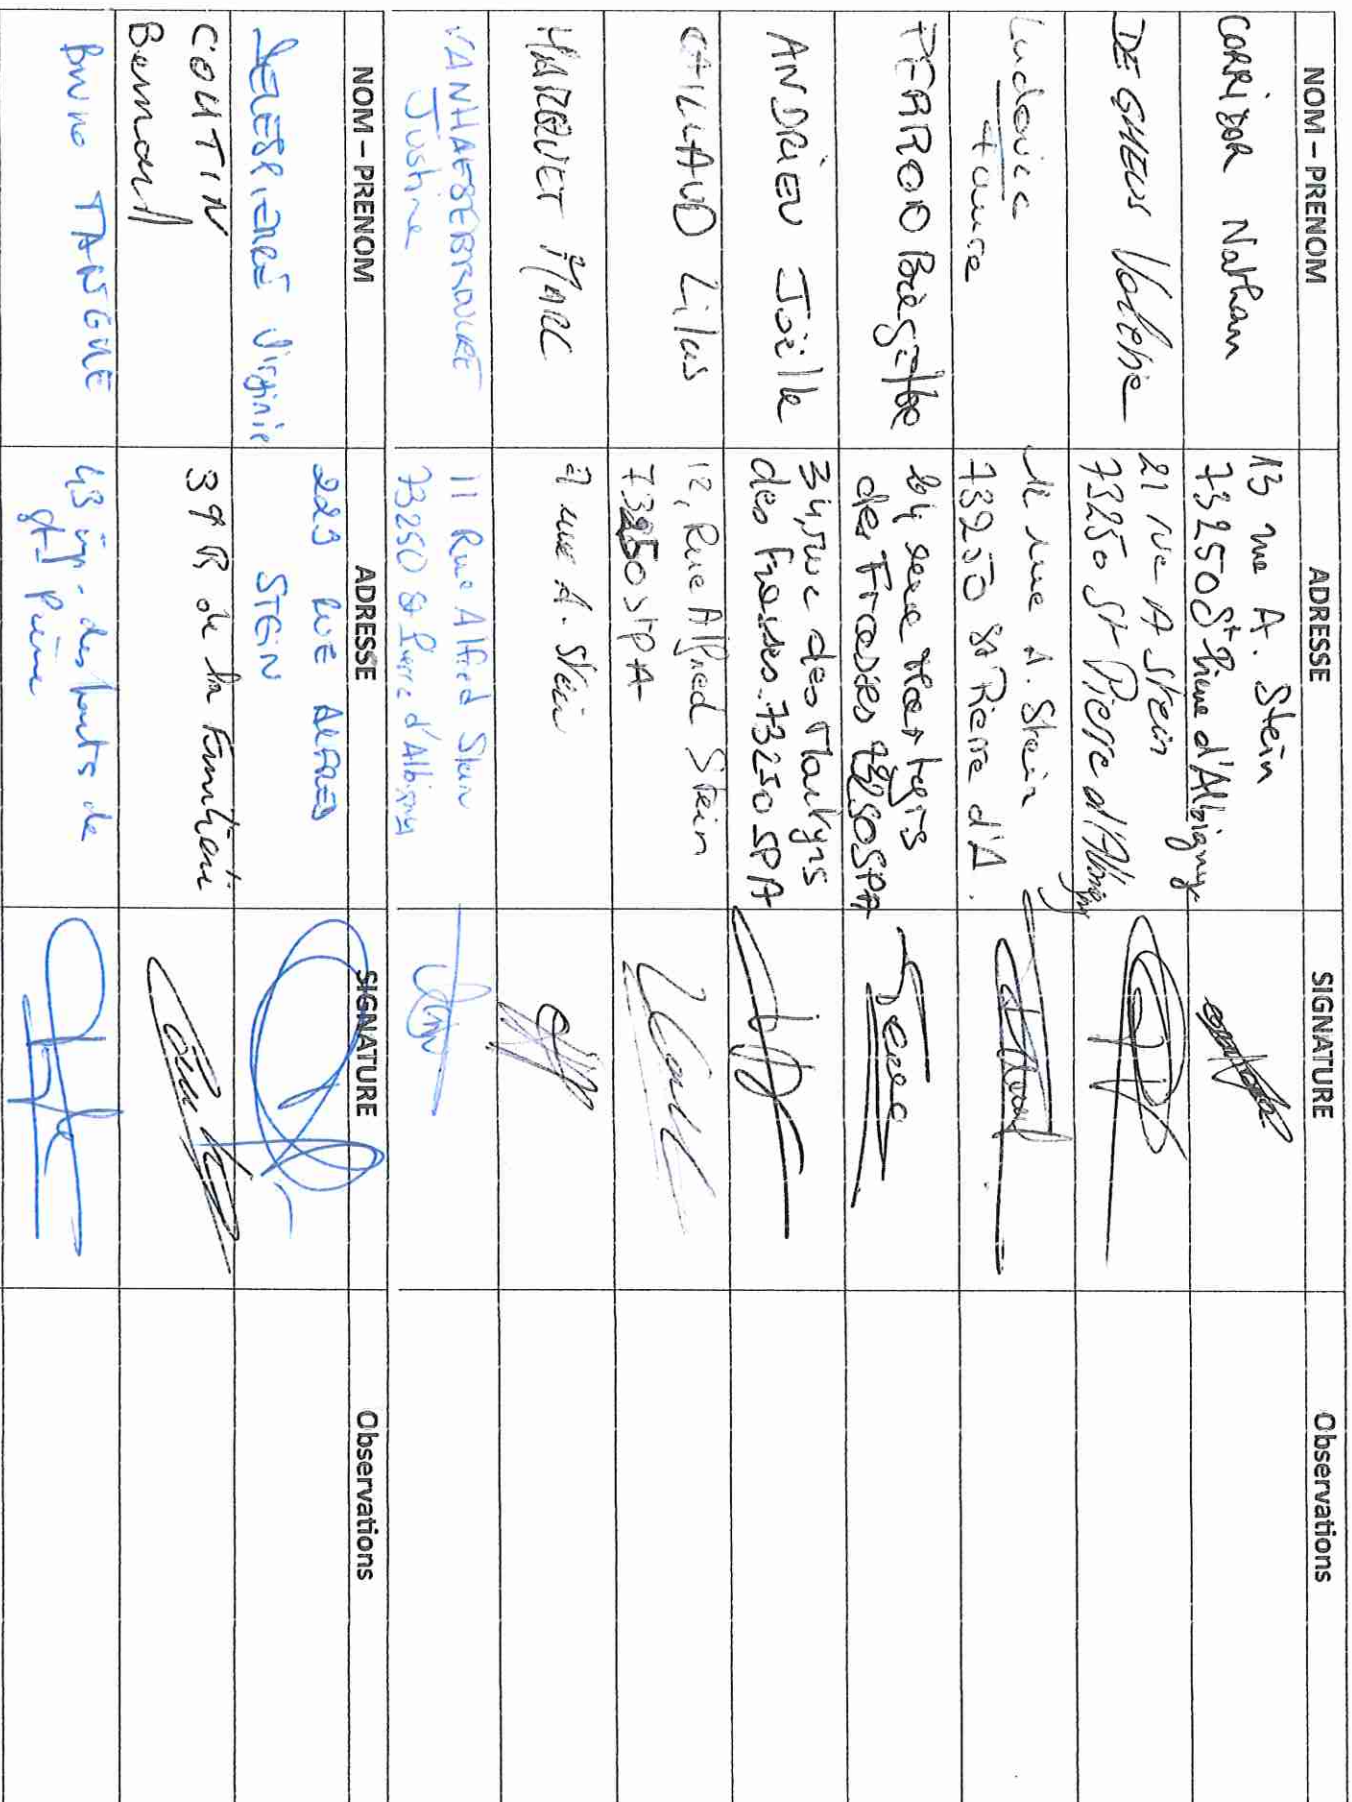 NOM – PRENOM ADRESSE SIGNATURE Observations
Nathan
13 rue A. Stein
73250 St Pierre d'Albigny
DE GHEUS Valérie
21 rue A Stein
73250 St Pierre d'Albigny
Ludovic
Faure
rue A. Stein
73250 St Pierre d'A.
PERROD
24 rue des Martyrs
des Frasses 73250 SPA
ANDRIEU Joëlle
34, rue des Martyrs
des Frasses. 73250 SPA
CAILLAUD Lilas
12, Rue Alfred Stein
73250 SPA
Marc
7 rue A. Stein
Justine
11 Rue Alfred Stein
73250 St Pierre d'Albigny
NOM – PRENOM ADRESSE SIGNATURE Observations
Virginie
223 RUE ALFRED
STEIN
COUTIN
Bernard
39 R de la
Bruno TANGUE
43 des hauts de
St Pierre